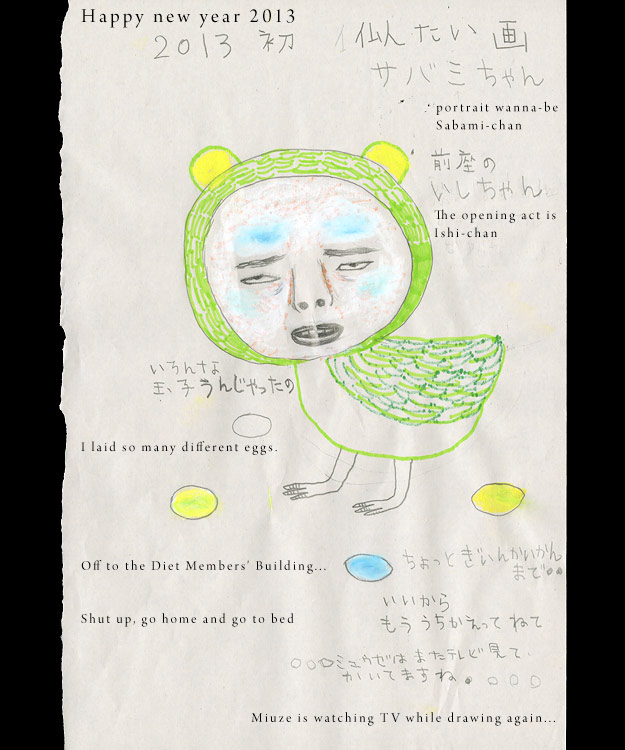 Happy new year 2013
2013 初 似たい画
サバミちゃん
portrait wanna-be
Sabami-chan
前座の
いしちゃん
The opening act is
Ishi-chan
いろんな
玉子うんじゃったの
I laid so many different eggs.
Off to the Diet Members' Building...
ちょっと ぎいんかいかん
まで・・
いいから
Shut up, go home and go to bed
もう うちかえって ねて
○○○ミュウゼは またテレビ見て、
かいてますね。○○○
Miuze is watching TV while drawing again...